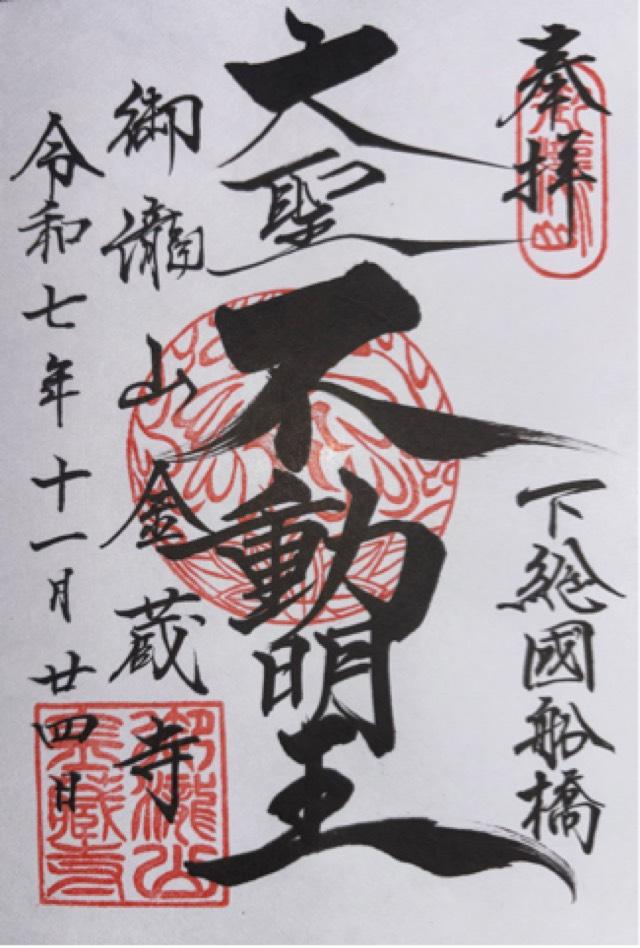 奉拝
御瀧山
下総國船橋
大聖不動明王
御瀧山金蔵寺
令和七年十一月廿四日
御瀧山
金藏寺